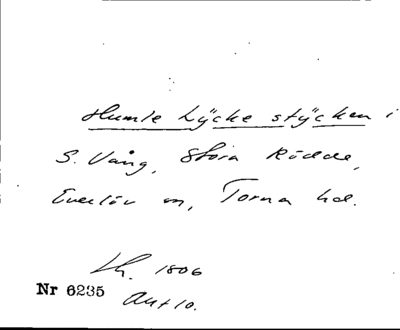 Humle Lÿcke stÿcken i
S. Vång, Stora Rödde,
Everlöv sn, Torna hd.
Lh. 1806
Nr 6235
Akt 10.